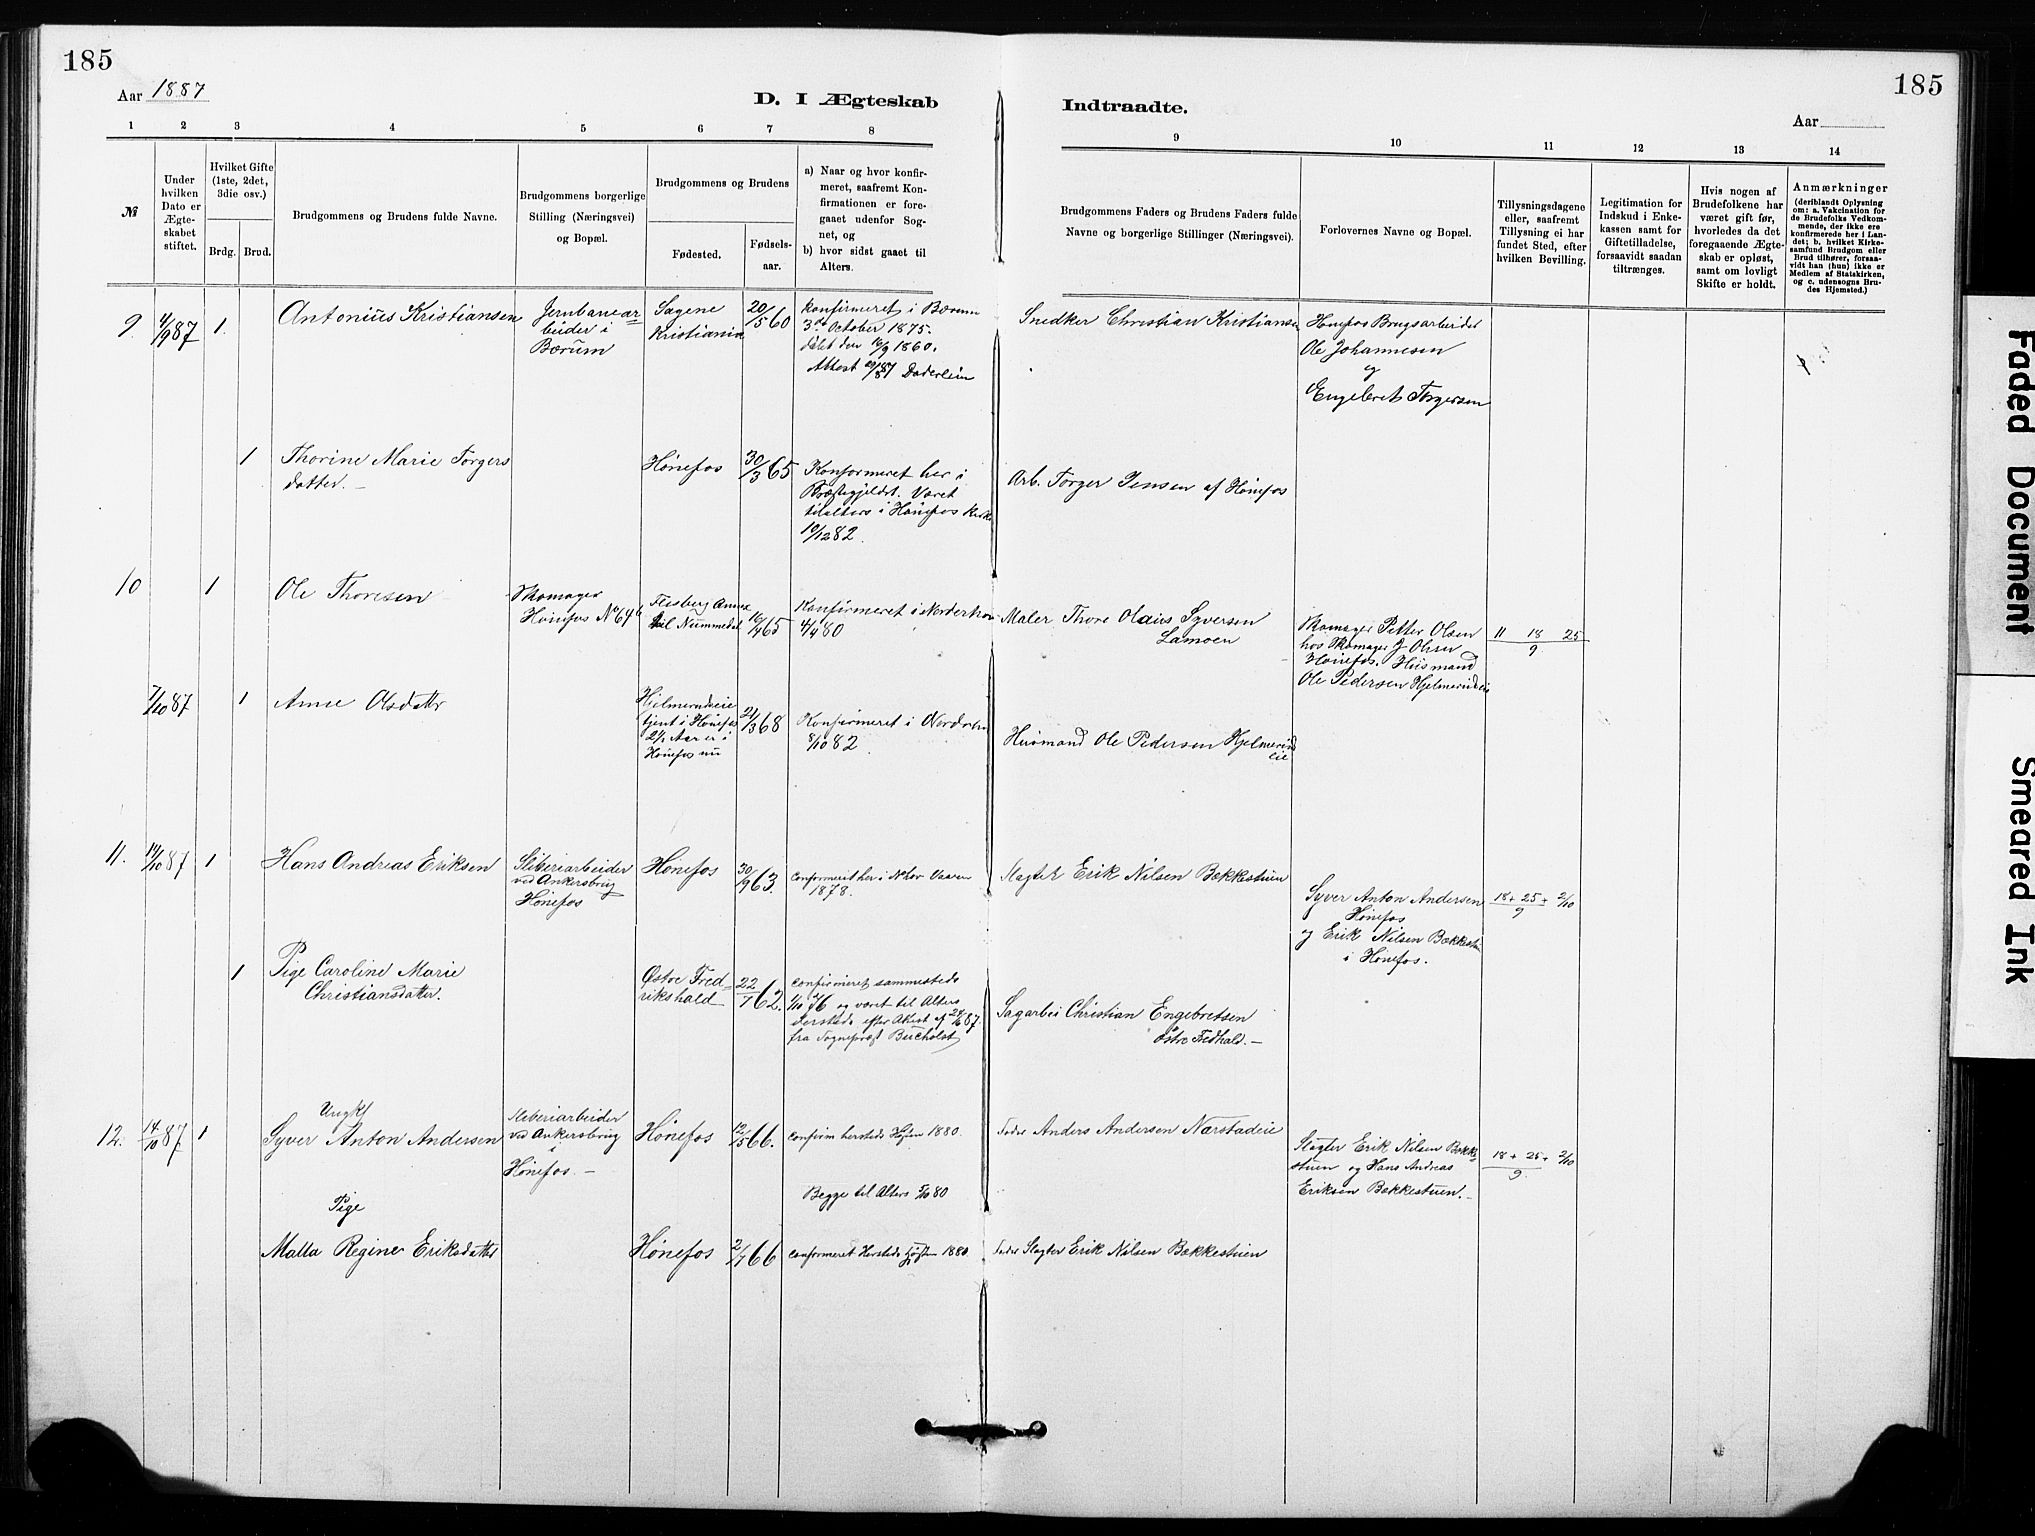 185
185
Aar 1887
D. I Ægteskab
Indtraadte.
Aar
1 2 3 4 5 6 7 8 9 10 11 12 13 14
№
Under
hvilken
Dato er
Ægte-
skabet
stiftet.
Hvilket Gifte
(1ste, 2det,
3die osv.)
Brdg. Brud.
Brudgommens og Brudens fulde Navne.
Brudgommens borgerlige
Stilling (Næringsvei)
og Bopæl.
Brudgommens og Brudens
Fødested.
Fødsels-
aar.
a) Naar og hvor konfir-
meret, saafremt Kon-
firmationen er fore-
gaaet udenfor Sog-
net, og
b) hvor sidst gaaet til
Alters.
Brudgommens Faders og Brudens Faders fulde
Navne og borgerlige Stillinger (Næringsvei).
Forlovernes Navne og Bopæl.
Tillysningsdagene
eller, saafremt
Tillysning ei har
fundet Sted, efter
hvilken Bevilling.
Legitimation for
Indskud i Enke-
kassen samt for
Giftetilladelse,
forsaavidt saadan
tiltrænges.
Hvis nogen af
Brudefolkene har
været gift før,
hvorledes da det
foregaaende Ægte-
skab er opløst,
samt om lovligt
Skifte er holdt.
Anmærkninger
(deriblandt Oplysning
om: a. Vakcination for
de Brudefolks Vedkom-
mende, der ikke ere
konfirmerede her i Lan-
det; b. hvilket Kirke-
samfund Brudgom eller
Brud tilhører, forsaa-
vidt han (hun) ikke er
Medlem af Statskirken,
og c. udensogns Bru-
des Hjemsted.)
9. 4/9 87 1. Antonius Kristiansen
Jernbanear-
beider i
Bærum
Sagene
Kristiania
20/5 60
Konfirmeret i Bærum
3die October 1875.
døbt den 16/9 1860.
Attest
Snedker Christian Kristiansen
Hønefos Brugsarbeider
Ole Johannesen
og
Engebret Torgersen
1 Thorine Marie Torgers
datter. –
Hønefos
30/3 65
Konfirmeret her i
Præstegjeldet. Været
tilalters i Hønefos Kirke
10/12 82.
Arb. Torger Jensen af Hønefos
10 1 Ole Thoresen
Skomager
Hønefos No 64 b
Flesberg Annex
til Nummedal
16/4 65
Konfirmeret i Norderhov
4/4 80
Maler Thore Olaus Syversen
Lamoen
Skomager Petter Olsen
hos Skomager J Olsen
Hønefos. Husmand
Ole Pedersen Hjelmerudeie
11 18 25
9
7/10 87 1 Anne Olsdattr
Hjelmerudeie
tjent i Hønefos
2½ Aar er i
Hønefos nu
21/3 68
Konfirmeret i Nordrehov
8/10 82.
Husmand Ole Pedersen Hjelmerud
eie
11. 14/10 87 1 Hans Andreas Eriksen
Sliberiarbeider
ved Ankersbrug
Hønefos
Hønefos
30/9 63.
Confirmeret her i N.hov Vaaren
1878.
Slagter Erik Nilsen Bækkestuen
Syver Anton Andersen
Hønefos
og Erik Nilsen Bækkestu
i Hønefos.
18 + 25 + 2/10
9
1 Pige Caroline Marie
Christiansdatter.
Østre Fred-
rikshald
22/1 62.
Confirmeret sammesteds
1/10 76 og været til Alters
efter Attest af
fra Sognepræst Bucholst
Sagarbei Christian Engebretsen
Østre Fredhald. –
Ungk
12. 14/10 87 1 Syver Anton Andersen
Sliberiarbeider
ved Ankersbrug
i
Hønefos. –
Hønefos
12/5 66.
Confirm hersteds Høsten 1880.
Begge til Alters 5/10 80
Fader Anders Andersen Nærstadeie
Slagter Erik Nilsen Bække-
stuen og Hans Andreas
Eriksen Bækkestuen. –
18 + 25 + 2/10
9
Pige
Malla Regine Eriksdatter
Hønefos
2/7 66
Confirmeret Hersteds Høsten 1880.
Fader Slagter Erik Nilsen Bækkestuen
Faded Document
Smeared Ink